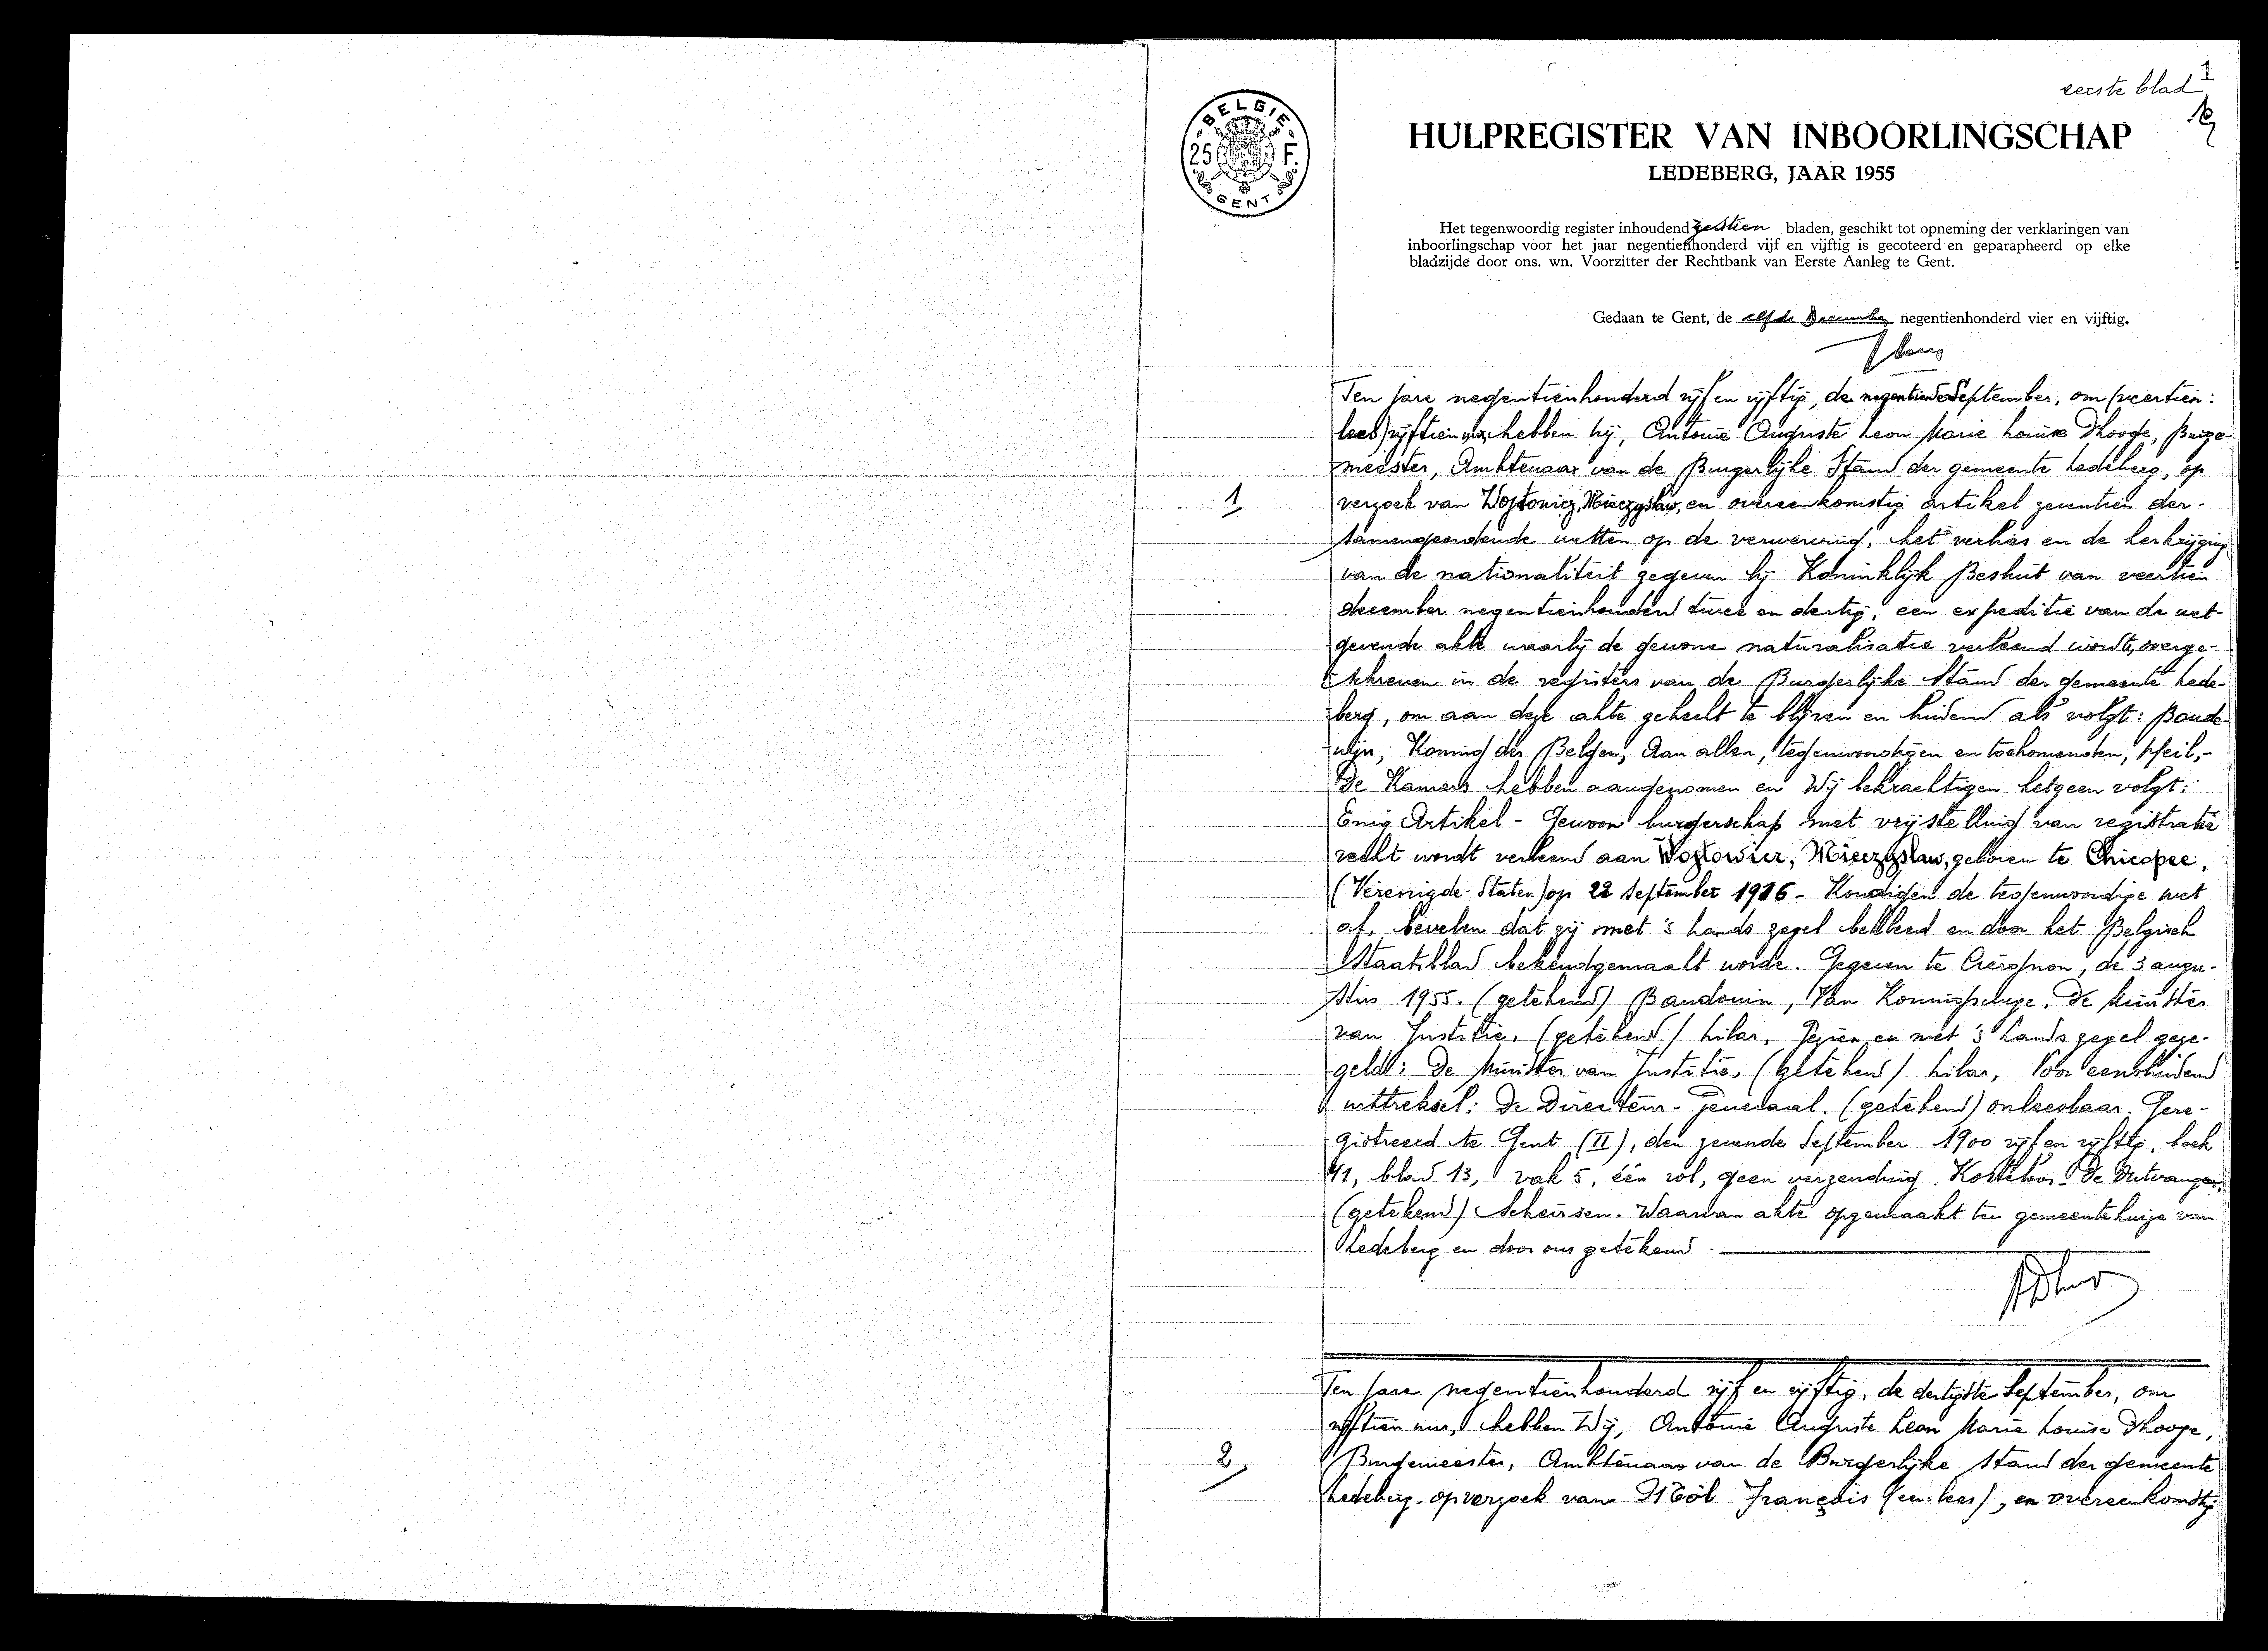 eerste blad
1
BELGIE
25 F.
GENT
HULPREGISTER VAN INBOORLINGSCHAP
LEDEBERG, JAAR 1955
Het tegenwoordig register inhoudend zestien bladen, geschikt tot opneming der verklaringen van
inboorlingschap voor het jaar negentienhonderd vijf en vijftig is gecoteerd en geparapheerd op elke
bladzijde door ons. wn. Voorzitter der Rechtbank van Eerste Aanleg te Gent.
Gedaan te Gent, de elfde December negentienhonderd vier en vijftig.
Ten jare negentienhonderd vijf en vijftig, de negentiende September, om (veertien:
lees) vijftien uur, hebben Wij, Antoine Auguste Leon Marie Louise Dhooge, Burge-
meester, Ambtenaar van de Burgerlijke Stand der gemeente Ledeberg, op
1
verzoek van Wojtowicz, Mieczyslaw, en overeenkomstig artikel zeventien der
samengeordende wetten op de verwerving, het verlies en de herkrijging
van de nationaliteit gegeven bij Koninklijk Besluit van veertien
december negentienhonderd twee en dertig, een expeditie van de wet-
gevende akte waarbij de gewone naturalisatie verleend wordt, overge-
schreven in de registers van de Burgerlijke Stand der gemeente Lede-
berg, om aan deze akte gehecht te blijven en luidend als volgt: Boude-
wijn, Koning der Belgen, Aan allen, tegenwoordigen en toekomenden, Heil,-
De Kamers hebben aangenomen en Wij bekrachtigen hetgeen volgt:
Enig Artikel - Gewoon burgerschap met vrijstelling van registratie
recht wordt verleend aan Wojtowicz, Mieczyslaw, geboren te Chicopee,
(Verenigde-Staten) op 22 september 1916. Kondigen de tegenwoordige wet
af, bevelen dat zij met 's Lands zegel bekleed en door het Belgisch
Staatsblad bekendgemaakt worde. Gegeven te Ciergnon, de 3 augu-
stus 1955. (getekend) Baudouin, Van Koningswege, De Minister
van Justitie, (getekend) Lilar, Gezien en met 's Lands zegel geze-
geld: De Minister van Justitie, (getekend) Lilar, Voor eensluidend
uittreksel: De Directeur-Generaal. (getekend) onleesbaar. Gere-
gistreerd te Gent (II), den zevende September 1900 vijf en vijftig, boek
41, blad 13, vak 5, één rol, geen verzending. Kosteloos. De Ontvanger,
(getekend) Scheirsen. Waarvan akte opgemaakt ten gemeentehuize van
Ledeberg en door ons getekend.
Ten jare negentienhonderd vijf en vijftig, de dertigste September, om
vijftien uur, hebben Wij, Antoine Auguste Leon Marie Louise Dhooge,
2
Burgemeester, Ambtenaar van de Burgerlijke Stand der gemeente
Ledeberg, op verzoek van François (een: lees), en overeenkomstig